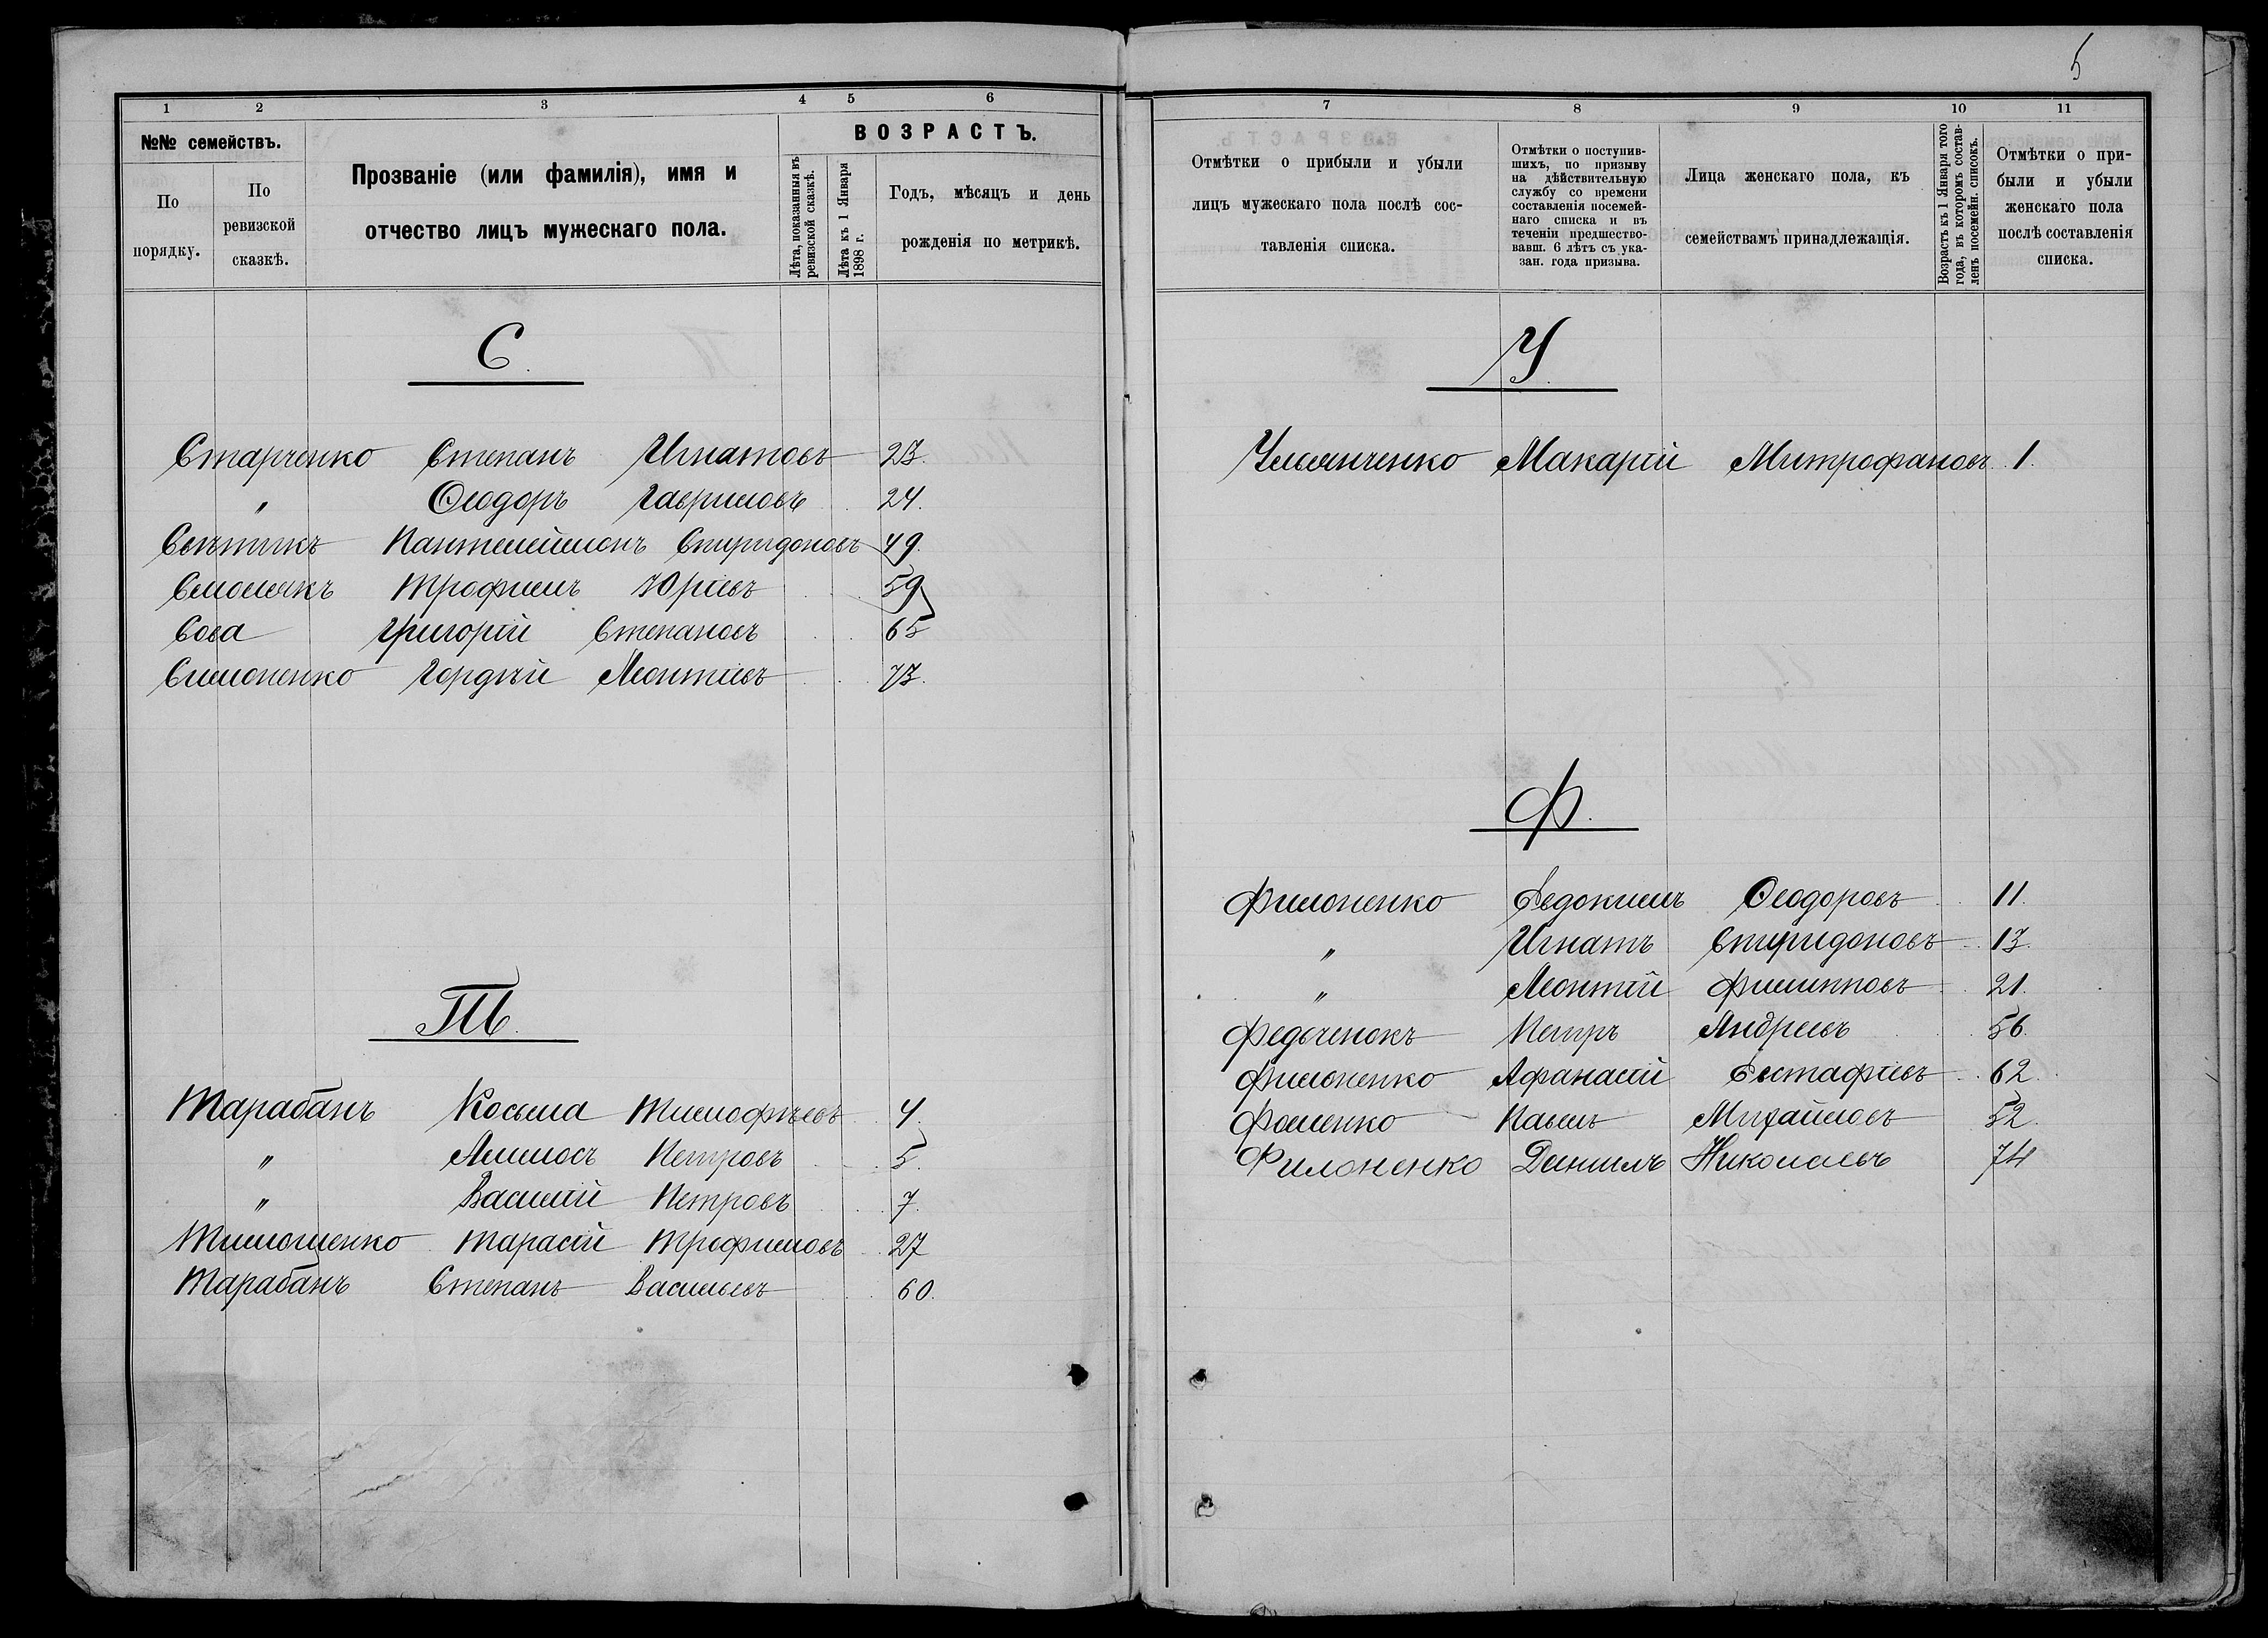 5
1 2 3 4 5 6
№№ семействъ.
По порядку.
По ревизской сказкѣ.
Прозваніе (или фамилія), имя и
отчество лицъ мужескаго пола.
ВОЗРАСТЪ.
Лѣта, показанныя въ
ревизской сказкѣ.
Лѣта къ 1 Января
1898 г.
Годъ, мѣсяцъ и день
рожденія по метрикѣ.
С.
Старченко Степанъ Игнатовъ 23.
" Ѳеодоръ Гавриловъ 24.
Пантелеймонъ Спиридоновъ 49.
Смолякъ Трофимъ Юріевъ 59
Сова Григорій Степановъ 65
Симоненко Гордѣй Леонтіевъ 73.
Т.
Тарабанъ Косьма Тимофѣевъ 4.
" Петровъ 5.
" Василій Петровъ 7.
Тимошенко Тарасій Трофимовъ 27
Тарабанъ Степанъ Васильевъ 60.
7 8 9 10 11
Отмѣтки о прибыли и убыли
лицъ мужескаго пола послѣ сос-
тавленія списка.
Отмѣтки о поступив-
шихъ, по призыву
на дѣйствительную
службу со времени
составленія посемей-
наго списка и въ
теченіи предшество-
вавш. 6 лѣтъ съ ука-
зан. года призыва.
Лица женскаго пола, къ
семействамъ принадлежащія.
Возрастъ къ 1 Января того
года, въ которомъ состав-
ленъ посемейн. списокъ.
Отмѣтки о при-
были и убыли
женскаго пола
послѣ составленія
списка.
У.
Ульянченко Макарій Митрофановъ 1.
Ф.
Филоненко Евдокимъ Ѳеодоровъ 11.
" Игнатъ Спиридоновъ 13.
" Леонтій Филипповъ 21.
Федченокъ Петръ Андреевъ 56.
Филоненко Афанасій Евстафіевъ 62.
Фоменко Павелъ Михайловъ 52.
Филоненко Даніилъ Николаевъ 74